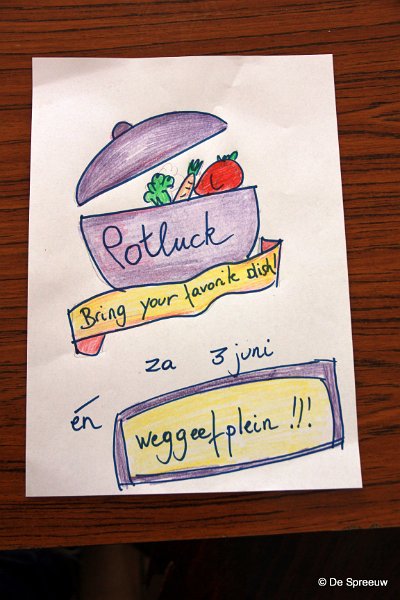 Potluck
Bring your favorite dish!
za 3 juni
én
weggeefplein !!!
© De Spreeuw